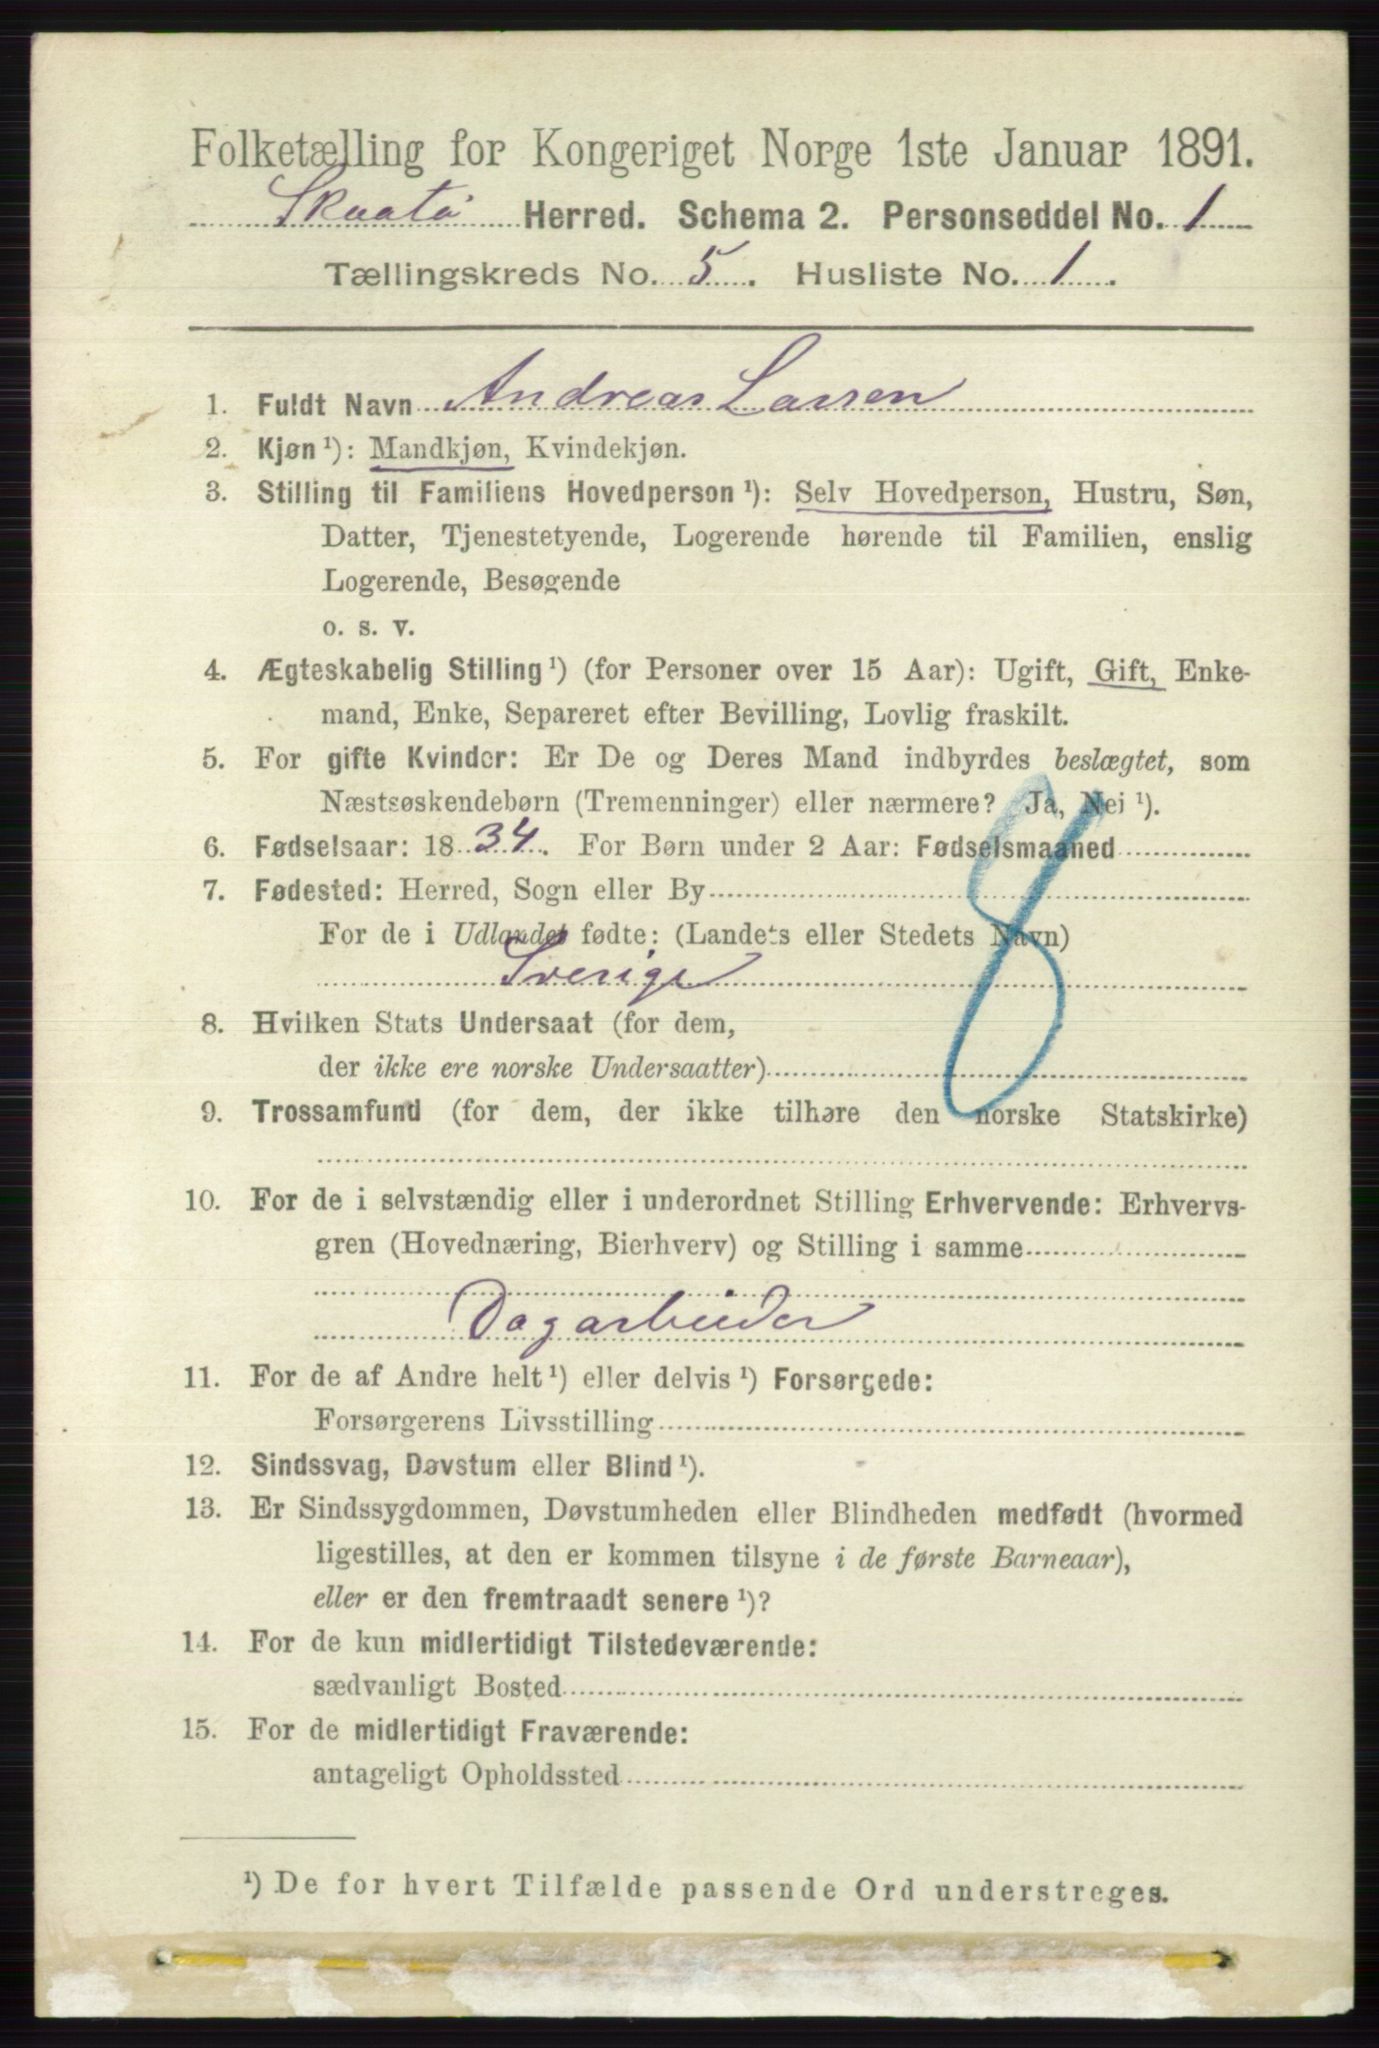 Folketælling for Kongeriget Norge 1ste Januar 1891.
Skaatö Herred. Schema 2. Personseddel No. 1
Tællingskreds No. 5. Husliste No. 1.
1. Fuldt Navn Andreas Larsen
2. Kjøn ¹): Mandkjøn, Kvindekjøn.
3. Stilling til Familiens Hovedperson ¹): Selv Hovedperson, Hustru, Søn,
Datter, Tjenestetyende, Logerende hørende til Familien, enslig
Logerende, Besøgende
o. s. v.
4. Ægteskabelig Stilling ¹) (for Personer over 15 Aar): Ugift, Gift, Enke-
mand, Enke, Separeret efter Bevilling, Lovlig fraskilt.
5. For gifte Kvinder: Er De og Deres Mand indbyrdes beslægtet, som
Næstsøskendebørn (Tremenninger) eller nærmere? Ja, Nei ¹).
6. Fødselsaar: 1834. For Børn under 2 Aar: Fødselsmaaned
7. Fødested: Herred, Sogn eller By
For de i Udlandet fødte: (Landets eller Stedets Navn)
Sverige
8
8. Hvilken Stats Undersaat (for dem,
der ikke ere norske Undersaatter)
9. Trossamfund (for dem, der ikke tilhøre den norske Statskirke)
10. For de i selvstændig eller i underordnet Stilling Erhvervende: Erhvervs-
gren (Hovednæring, Bierhverv) og Stilling i samme
Dagarbeider
11. For de af Andre helt ¹) eller delvis ¹) Forsørgede:
Forsørgerens Livsstilling
12. Sindssvag, Døvstum eller Blind ¹).
13. Er Sindssygdommen, Døvstumheden eller Blindheden medfødt (hvormed
ligestilles, at den er kommen tilsyne i de første Barneaar),
eller er den fremtraadt senere ¹)?
14. For de kun midlertidigt Tilstedeværende:
sædvanligt Bosted
15. For de midlertidigt Fraværende:
antageligt Opholdssted
¹) De for hvert Tilfælde passende Ord understreges.